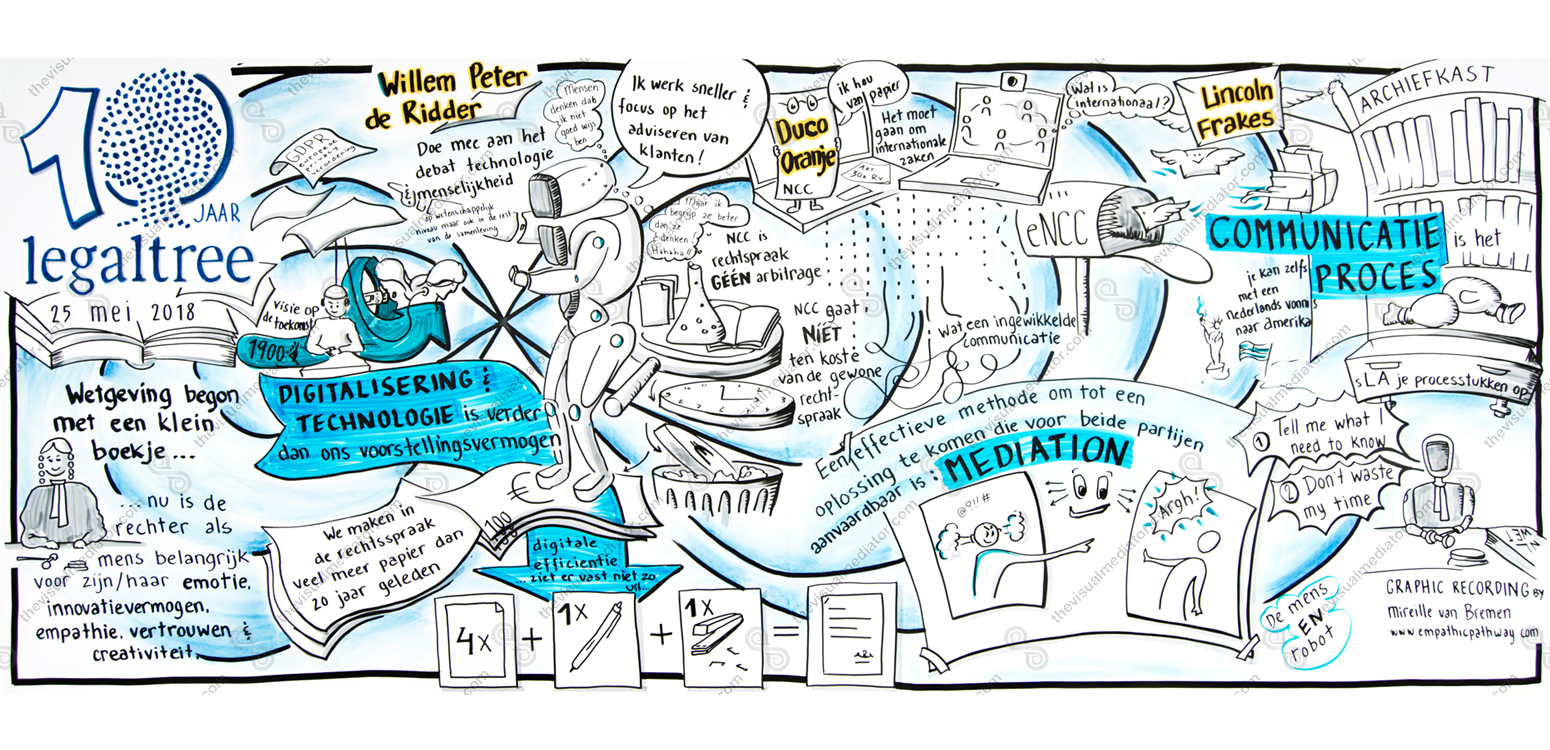 10
JAAR
legaltree
25 mei 2018
Wetgeving begon
met een klein
boekje...
...nu is de
rechter als
mens belangrijk
voor zijn/haar emotie,
innovatievermogen,
empathie, vertrouwen &
creativiteit.
Willem Peter
de Ridder
GDPR
Doe mee aan het
debat technologie
& menselijkheid
op wetenschappelijk
niveau maar ook in de rest
van de samenleving
Mensen
denken dat
ik niet
goed wijs
ben
Ik werk sneller &
focus op het
adviseren van
klanten!
visie op
de toekomst
1900
DIGITALISERING &
TECHNOLOGIE is verder
dan ons voorstellingsvermogen
Maar ik
begrijp ze beter
dan ze
denken
Hahaha!!
We maken in
de rechtsspraak
veel meer papier dan
20 jaar geleden
100
digitale
efficientie
...ziet er vast niet zo
uit.
4x
+
1x
+
1x
=
Duco
Oranje
NCC
ik hou
van papier
Het moet
gaan om
internationale
zaken
Wat is
internationaal?
NCC is
rechtspraak
GÉÉN arbitrage
NCC gaat
NIET
ten koste
van de gewone
recht-
spraak
eNCC
Wat een ingewikkelde
communicatie
Lincoln
Frakes
ARCHIEFKAST
COMMUNICATIE
is het
PROCES
je kan zelfs
met een
Nederlands vonnis
naar amerika
SLA je processtukken op
Een effectieve methode om tot een
oplossing te komen die voor beide partijen
aanvaardbaar is:
MEDIATION
@!!#
Argh!
1 Tell me what I
need to know
2 Don't waste
my time
De mens
EN
robot
GRAPHIC RECORDING BY
Mireille van Bremen
www.empathicpathway.com
thevisualmediator.com